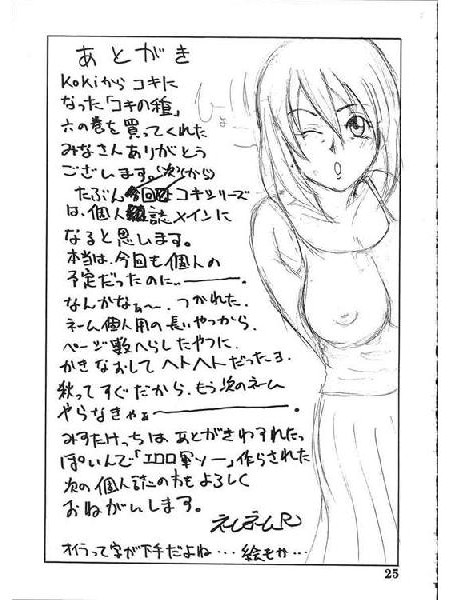 あとがき
KOKIから コキに
なった「コキの箱」
六の巻を買ってくれた
みなさんありがとう
ございます。次から
たぶん今回 コキシリーズ
は、個人誌メインに
なると思します。
本当は、今回も個人の
予定だったのに…ー。
なんかなぁ〜、つかれた。
ネーム個人用の長いやつから、
ページ数へらしたやつに
かきなおしてヘトヘトだったヨ。
秋ってすぐだから、もう次のネーム
やらなきゃぁー。
みすたけっちは あとがきわすれたっ
ぽいんで「エロロ軍ソー」作らされた
次の個人誌の方もよろしく
おねがいします。
オイラって字が下手だよね…絵もか…
25